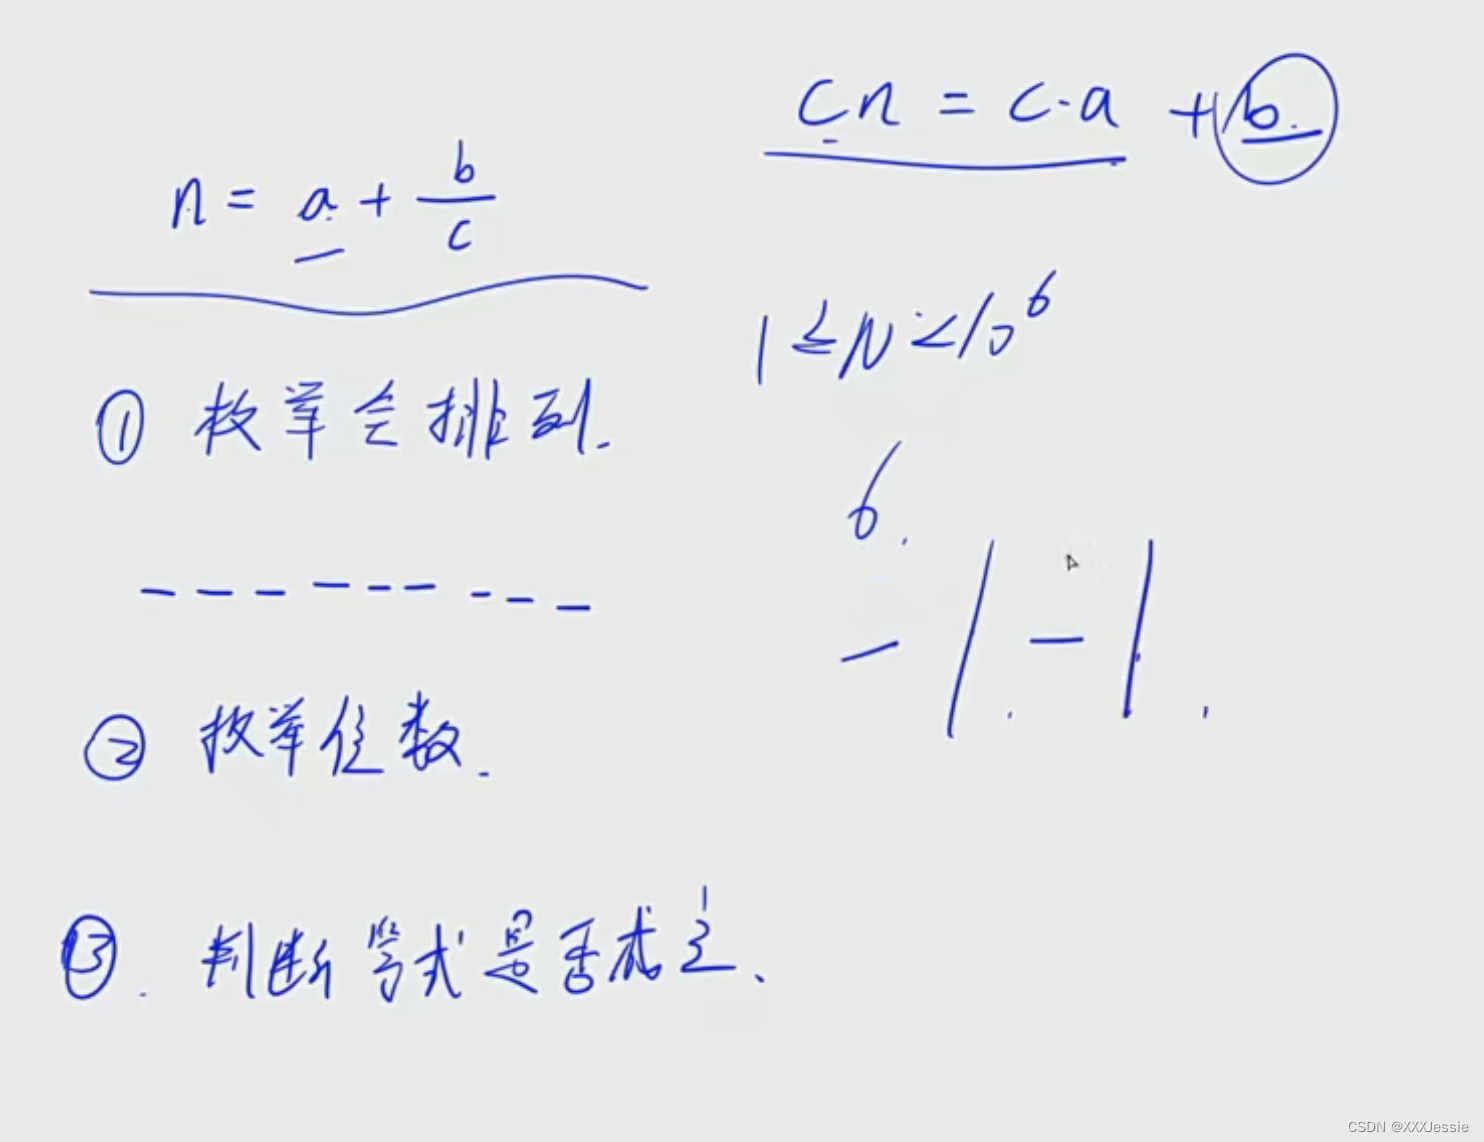 cn = c·a + b.
n = a + b/c
1 ≤ N < 10^6
① 枚举全排列.
6.
② 枚举位数.
③. 判断等式是否成立、
CSDN @XXXJessie